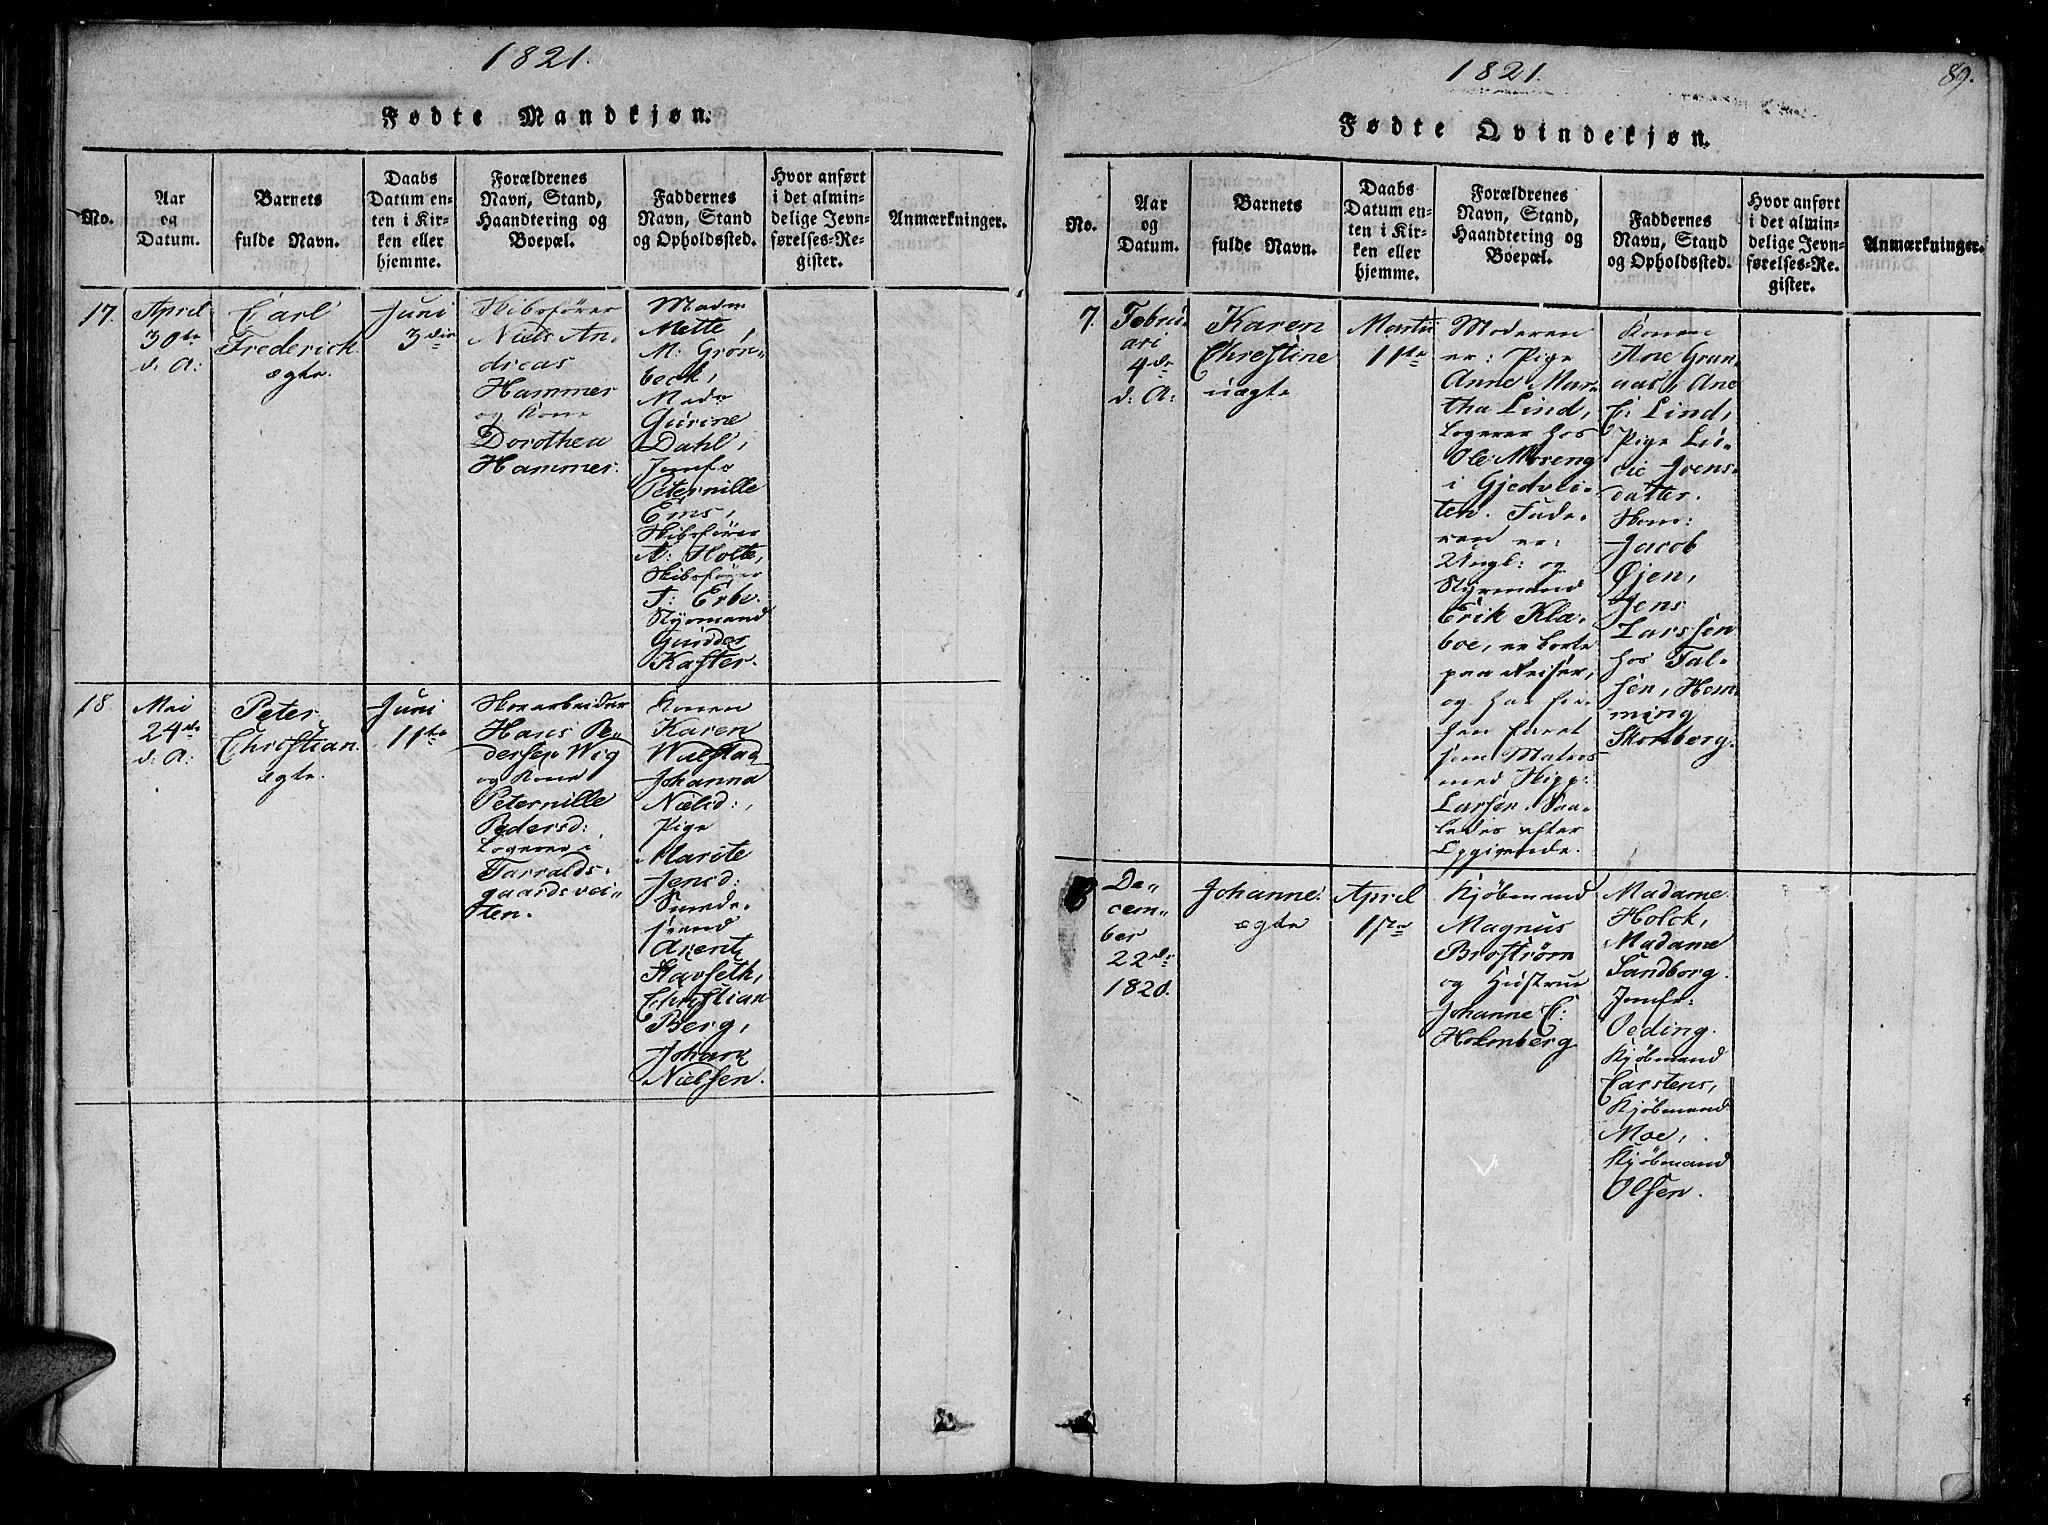 1821.
Fødte Mandkjøn.
No.
Aar
og
Datum.
Barnets
fulde Navn.
Daabs
Datum en-
ten i Kir-
ken eller
hjemme.
Forældrenes
Navn, Stand,
Haandtering og
Boepæl.
Faddernes
Navn, Stand
og Opholdssted.
Hvor anført
i det almin-
delige Jevn-
førelses-Re-
gister.
Anmærkninger.
17.
April
30te
d: A:
Carl
Frederick
ægte.
Juni
3die
Skibsfører
Niels An-
dreas
Hammer
og Kone
Dorothea
Hammer.
Madm
Mette
M: Grøn-
beck,
Mad:
Gurine
Dahl,
Jomfr
Peternille
Ems,
Skibsfører
A: Holte,
Skibsfører
T: Erbe.
Styrmand
Gunder
Kaster.
18
Mai
24de
d: A:
Peter
Christian
ægte.
Juni
11te
Hans Pe-
dersen Wig
og Kone
Peternille
Pedersd:
Logerer i
Tarralds-
gaardsvei-
ten.
Konen
Karen
Wulstad
Johanna
Nielsd:,
Pige
Marite
Jensd:
Smede-
svend
Arent
Stavseth,
Christian
Berg,
Johan
Nielsen.
1821.
89.
Fødte Qvindekjøn.
No.
Aar
og
Datum.
Barnets
fulde Navn.
Daabs
Datum en-
ten i Kir-
ken eller
hjemme.
Forældrenes
Navn, Stand,
Haandtering og
Boepæl.
Faddernes
Navn, Stand
og Opholdssted.
Hvor anført
i det almin-
delige Jevn-
førelses-Re-
gister.
Anmærkninger.
7.
Febru-
ari
4de
d: A:
Karen
Christine
uægte
Martii
11te
Moderen
er: Pige
Anne Mar-
tha Lind,
logerer hos
Ole Moreng
i Gjedvei-
ten. Fade-
ren er:
Ungk: og
Styrmand
Erik Kla-
boe, er borte
paa Reiser,
og har for-
hen faret
som Matros
med Skipp:
Larsen. Saa-
ledes efter
Opgivende.
Konen
Ane Gran-
aas, Ane
C: Lind,
Pige Lu-
cie Joens-
datter.
Jacob
Øjen,
Jens
Larssen
hos Fal-
sen, Hem-
ming
Skonberg.
8
De-
cem-
ber
22de
1820.
Johanne
ægte
April
1ste
Kjøbmand
Magnus
Brostrøm
og Hustrue
Johanne C:
Holmberg
Madame
Holck,
Madame
Sandborg.
Jomfr:
Oeding.
Kjøbmand
Carstens,
Kjøbmand
Moe,
Kjøbmand
Olsen.